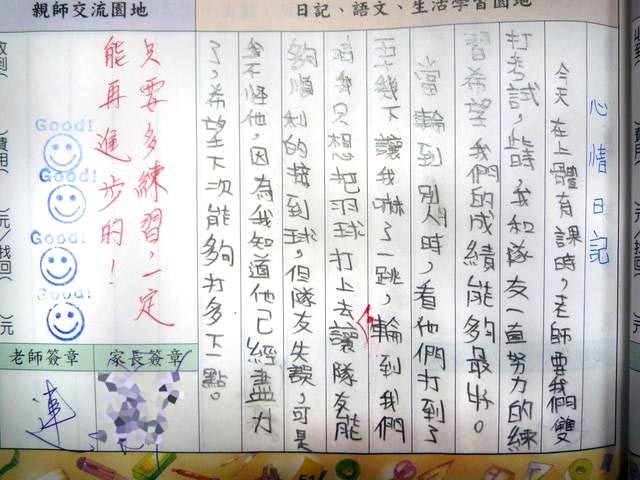 親師交流園地
日記、語文、生活學習園地
心情日記
今天在上體育課時，老師要我們雙
打考試，此時，我和隊友一直努力的練
習希望我們的成績能夠最好。
當輪到別人時，看他們打到了
五十幾下讓我嚇了一跳，輪到我們
時我只想把羽球打上去讓隊友能
夠順利的接到球，但隊友失誤，可是
我不怪他，因為我知道他已經盡力
了，希望下次能夠打多下一點。
只要多練習，一定
能再進步的！
Good!
Good!
Good!
Good!
老師簽章
家長簽章
蓮
費用
元
找回
元